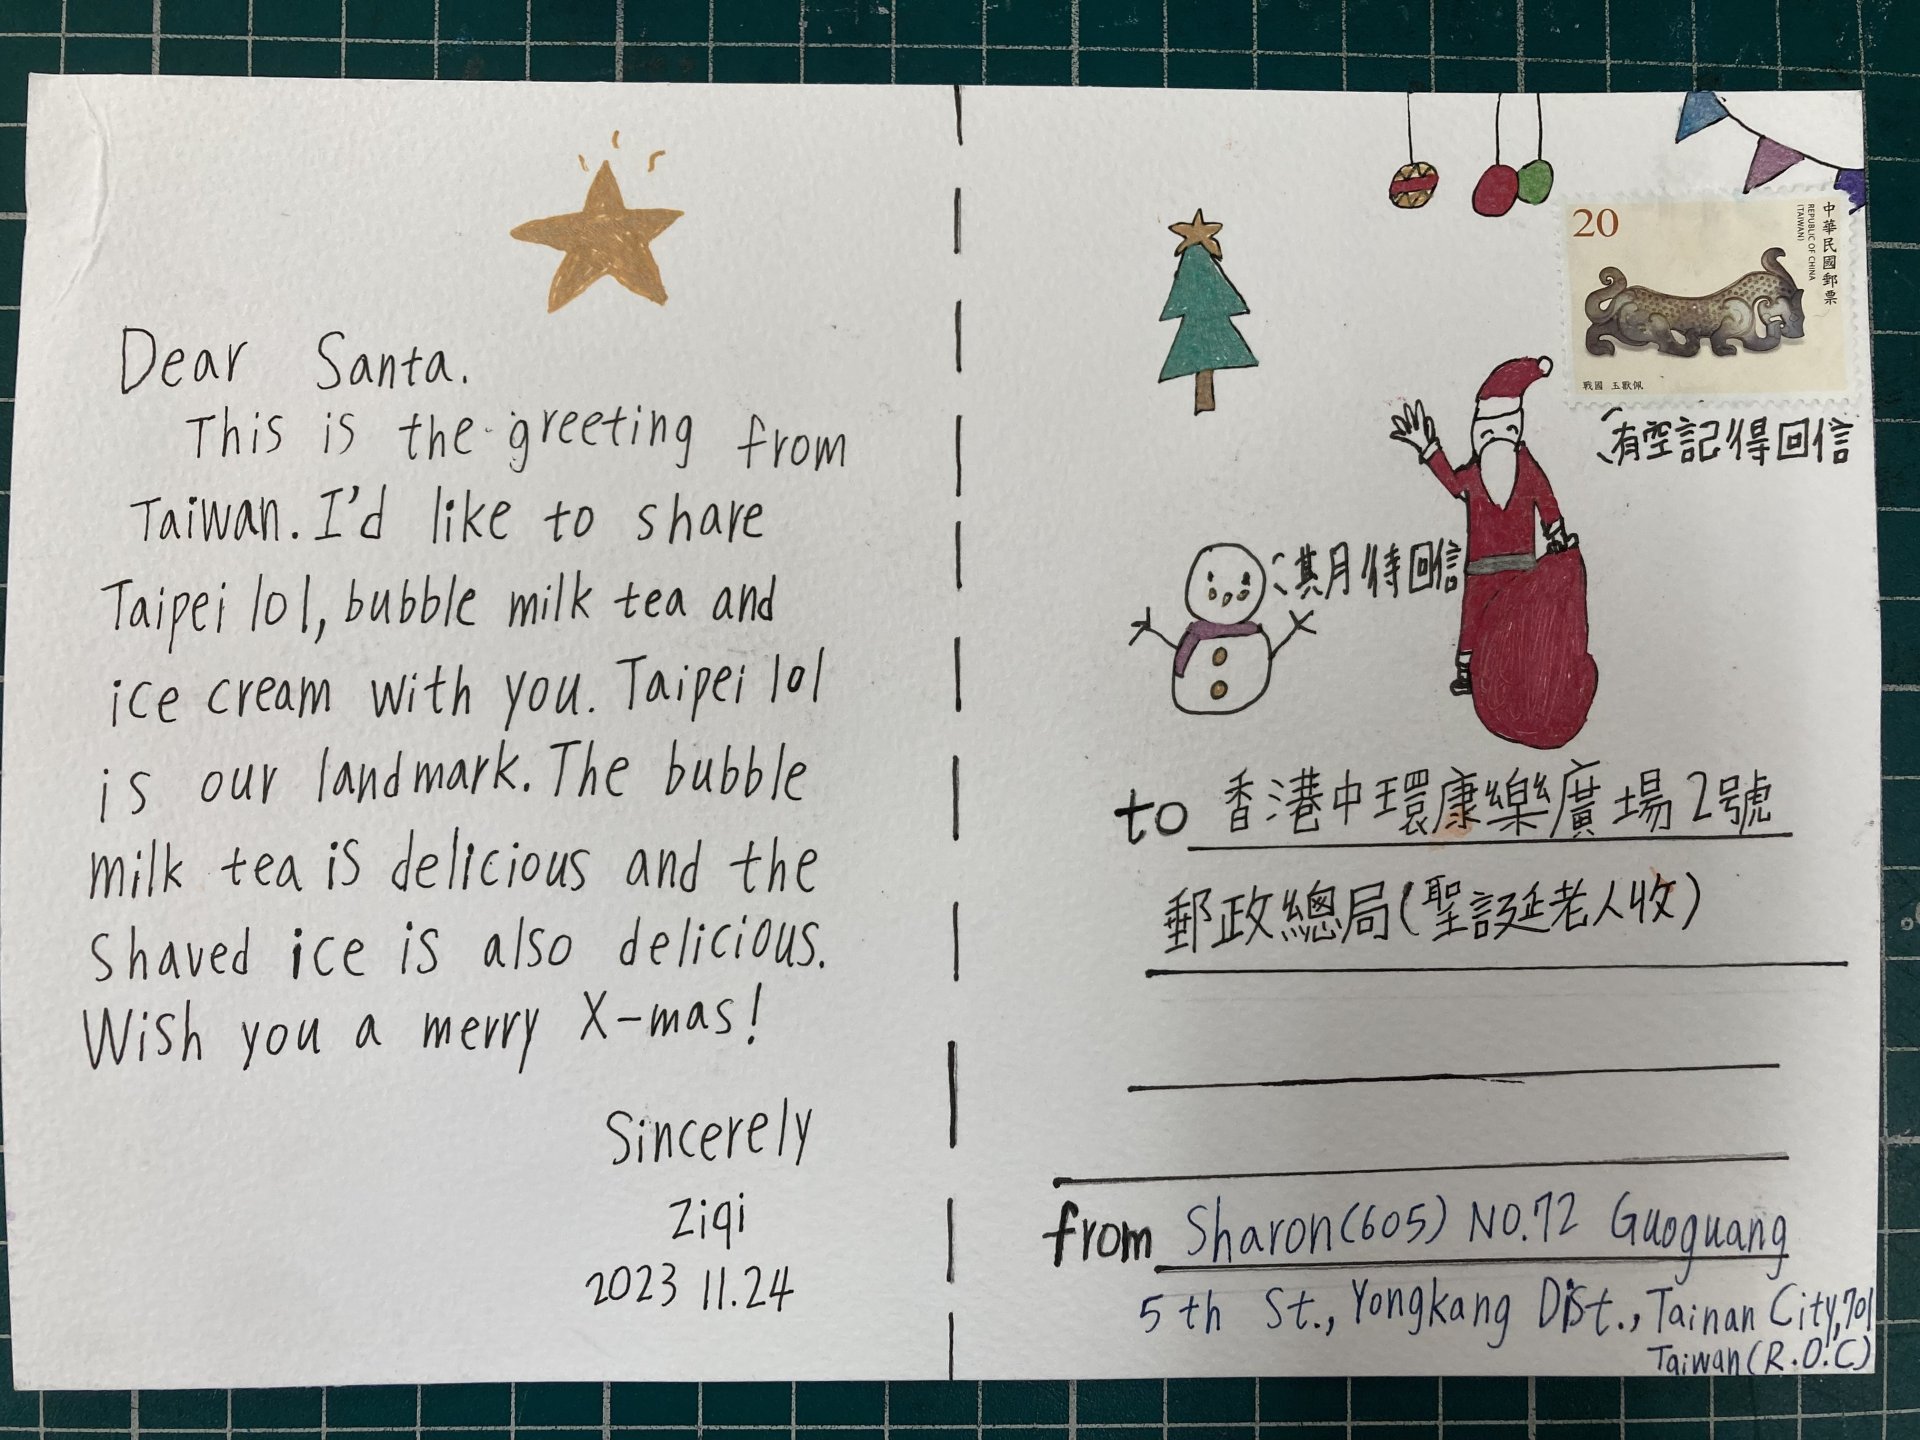 Dear Santa.
This is the greeting from
Taiwan. I'd like to share
Taipei 101, bubble milk tea and
ice cream with you. Taipei 101
is our landmark. The bubble
milk tea is delicious and the
shaved ice is also delicious.
Wish you a merry X-mas!
Sincerely
Ziqi
2023 11.24
20
中華民國郵票
REPUBLIC OF CHINA
(TAIWAN)
戰國 玉獸佩
有空記得回信
期待回信
to 香港中環康樂廣場2號
郵政總局(聖誕老人收)
from Sharon(605) NO.72 Guoguang
5 th St., Yongkang Dist., Tainan City, 701
Taiwan(R.O.C)